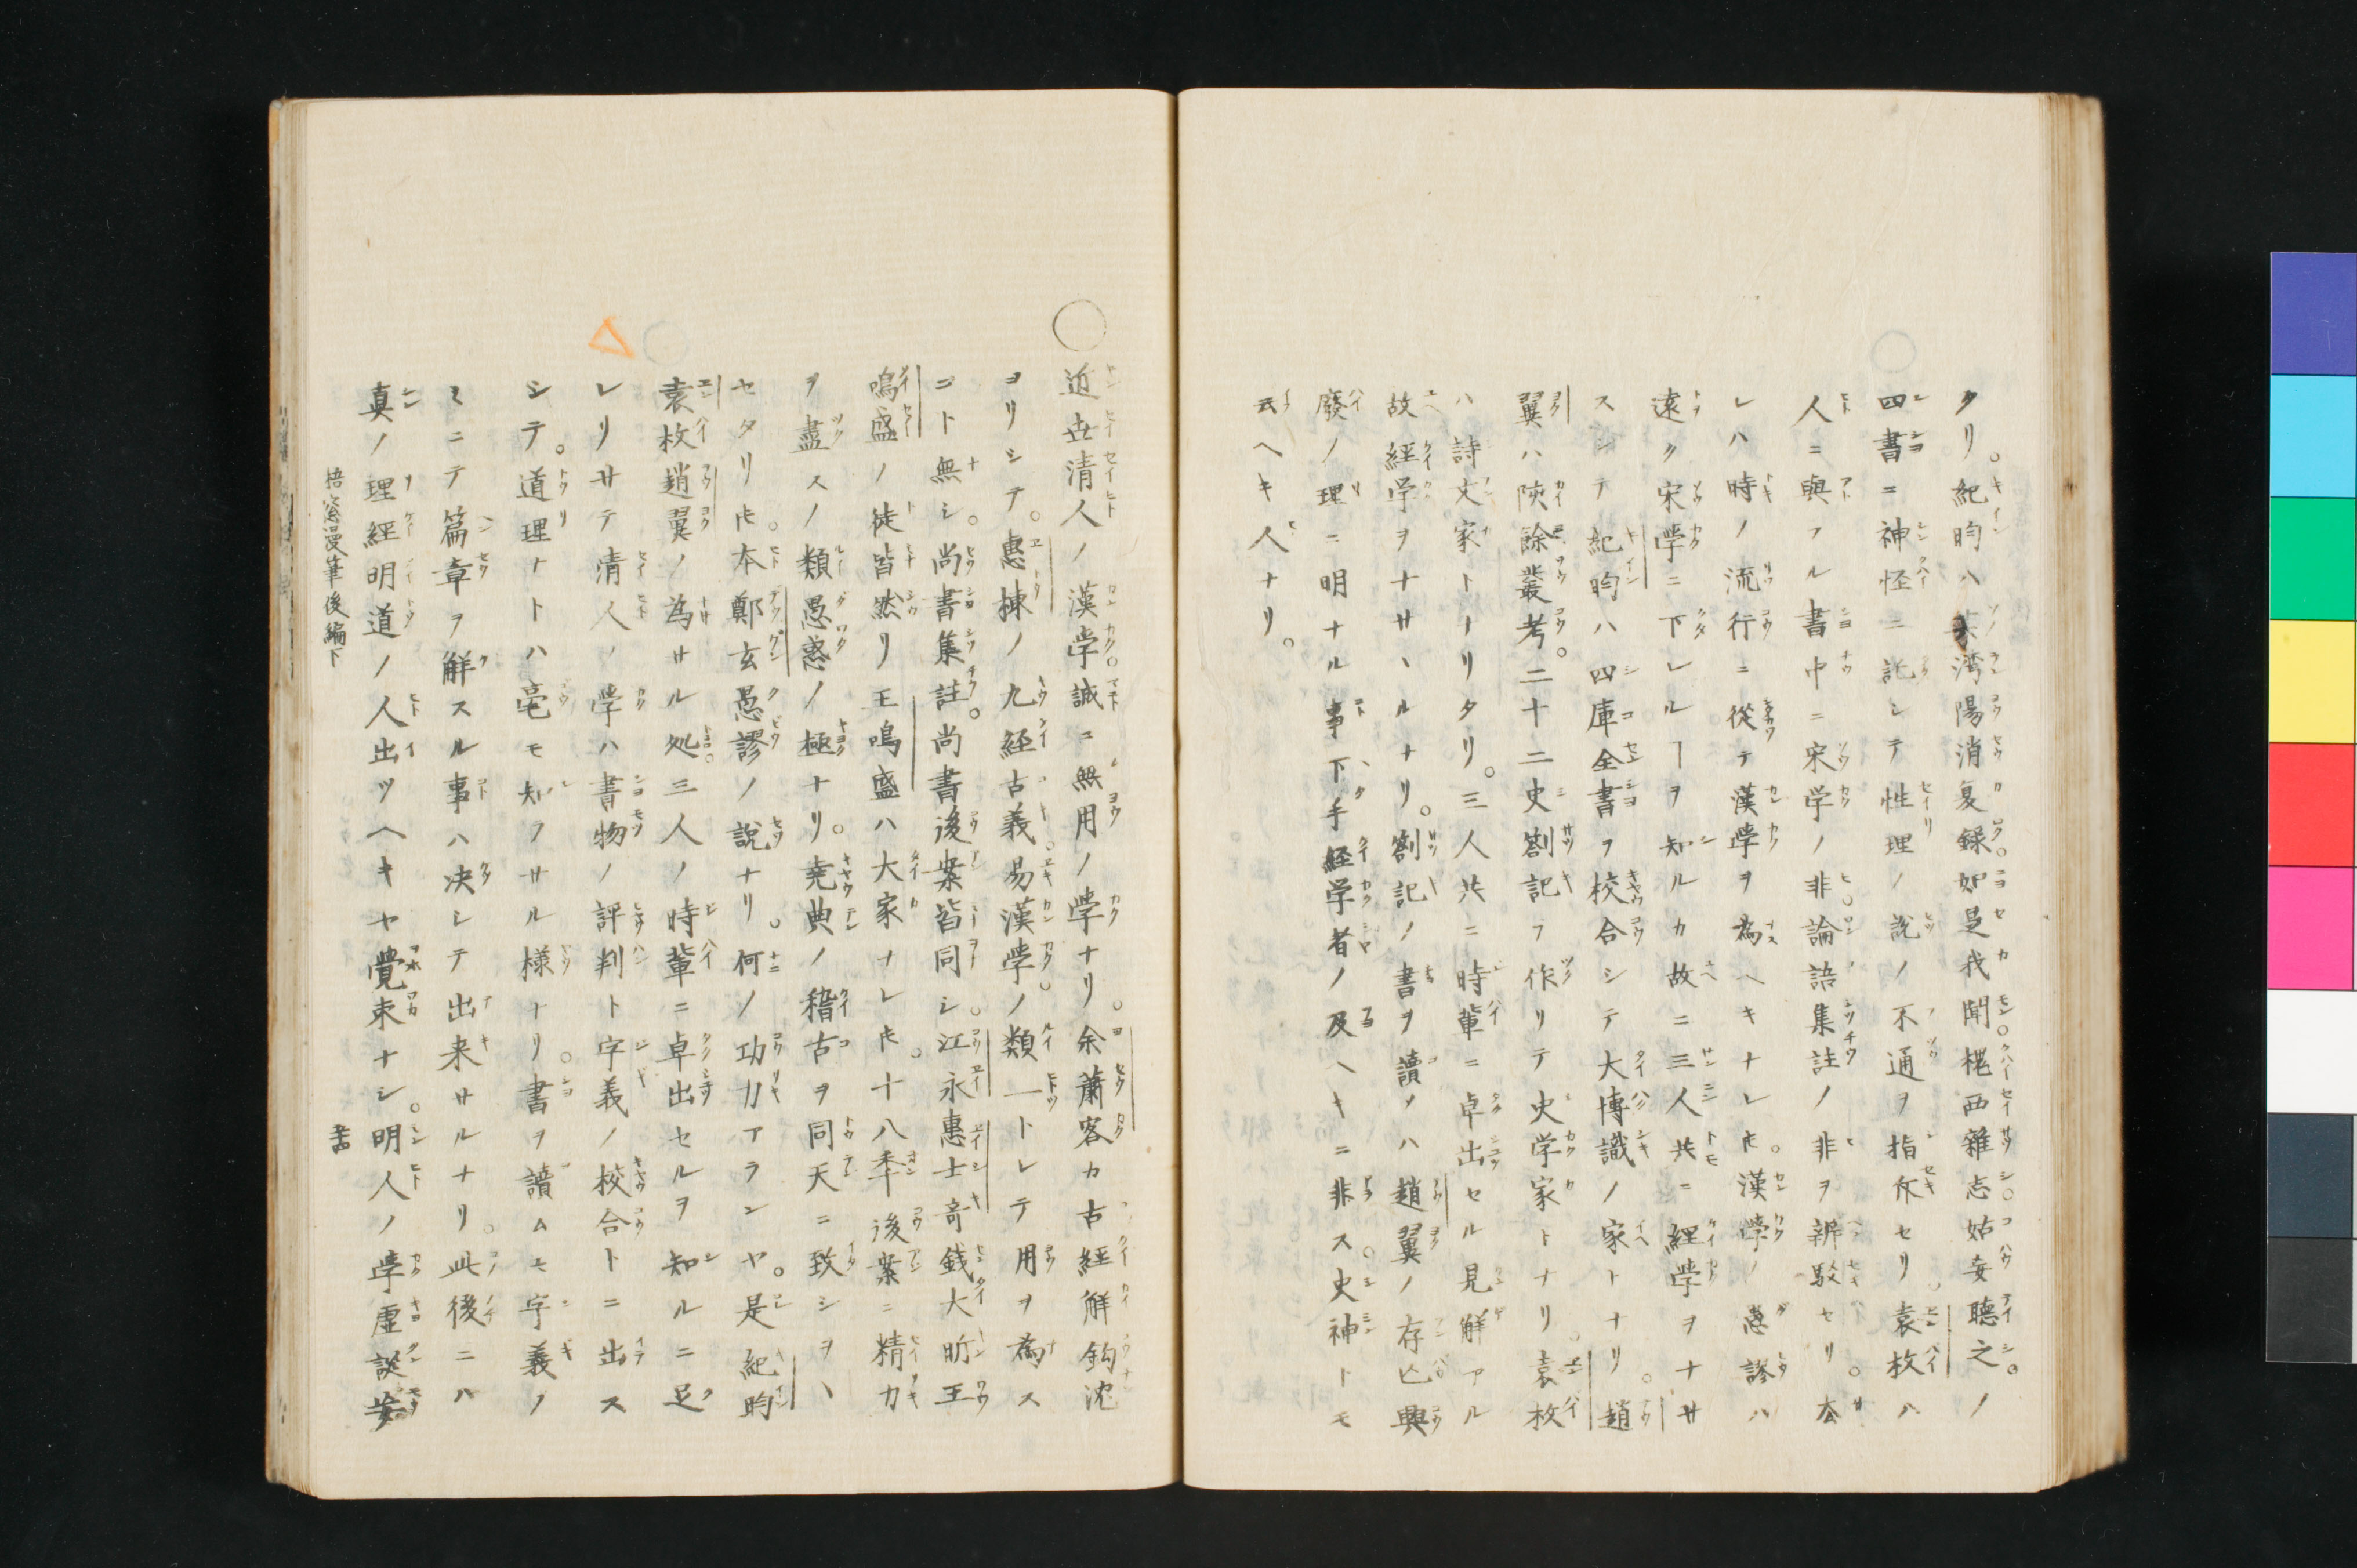 タリ。紀昀ハ灤陽消夏録。如是我聞。槐西雜志。姑妄聽之。ノ
四書ニ神怪ニ託シテ性理ノ説ノ不通ヲ指斥セリ。袁枚ハ
人ニ與フル書中ニ宋学ノ非論語集註ノ非ヲ辨駁セリ。左
レハ時ノ流行ニ從テ漢學ヲ為ヘキナレ𪜈。漢學ノ愚謬ハ
遠ク宋學ニ下レルヿヲ知ルカ故ニ三人共ニ經学ヲナサ
スシテ紀昀ハ四庫全書ヲ校合シテ大博識ノ家トナリ。趙
翼ハ陔餘叢考。二十二史劄記ヲ作リテ史学家トナリ。袁枚
ハ詩文家トナリタリ。三人共ニ時輩ニ卓出セル見解アル
故經学ヲナサヽルナリ。劄記ノ書ヲ讀メハ趙翼ノ存亡興
廢ノ理ニ明ナル事下手経学者ノ及ヘキニ非ス。史神トモ
云ヘキ人ナリ。
○近世清人ノ漢学。誠ニ無用ノ學ナリ。余蕭客カ古經解鈎沈
ヨリシテ。惠棟ノ九經古義。易漢學。ノ類一トシテ用ヲ為ス
ヿト無シ。尚書集註。尚書後案皆同シ。江永惠士奇錢大昕王
鳴盛ノ徒皆然リ王鳴盛ハ大家ナレ𪜈。十八年後案ニ精力
ヲ盡スノ類愚惑ノ極ナリ。堯典ノ稽古ヲ同天ニ致シヲヽ
セタリ𪜈。本鄭玄愚謬ノ説ナリ。何ノ功力アランヤ。是紀昀
袁枚趙翼ノ為サル処。三人ノ時輩ニ卓出セルヲ知ルニ足
レリサテ清人ノ学ハ書物ノ評判ト字義ノ校合トニ出ス
シテ。道理ナトハ毫モ知ラサル様ナリ。書ヲ讀ムモ字義ノ
ミニテ篇章ヲ解スル事ハ决シテ出来サルナリ。此後ニハ
真ノ理經明道ノ人出ツヘキヤ覺束ナシ。明人ノ學虚談妄
梧窓漫筆後編下